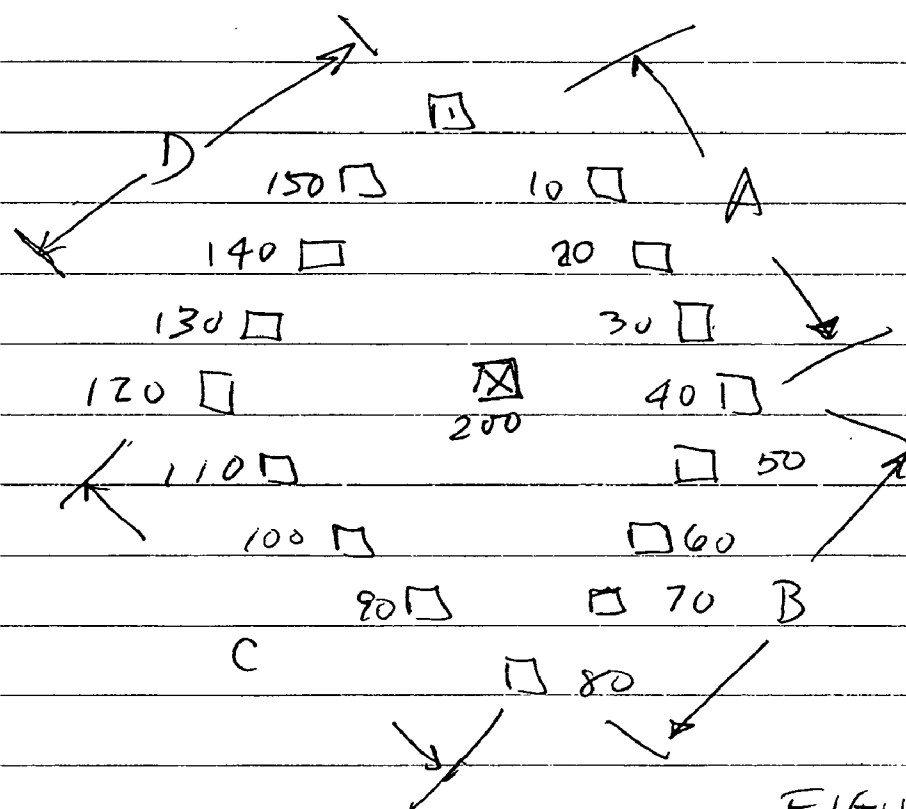 1
D
150 10 A
140 20
130 30
120 40
200
110 50
100 60
90 70 B
C
80